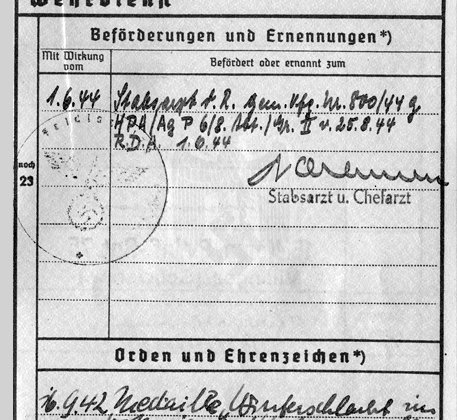 Wehrdienst
Beförderungen und Ernennungen*)
Mit Wirkung vom
Befördert oder ernannt zum
1.6.44 Stabsarzt d. R. gem. Vfg. Nr. 800/44 g
HPA/Ag P 6/8. Abt./Gr. II v. 25.8.44
R.D.A. 1.6.44
noch
23
Stabsarzt u. Chefarzt
Orden und Ehrenzeichen*)
16.9.42 Medaille Winterschlacht im